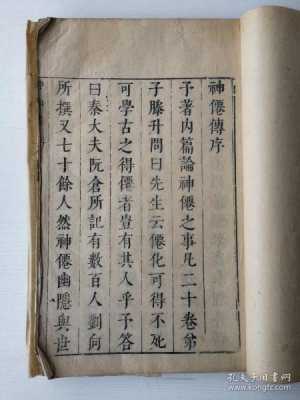 神僊傳序
予著內篇論神僊之事凡二十卷弟
子滕升問曰先生云僊化可得不死
可學古之得僊者豈有其人乎予答
曰秦大夫阮倉所記有數百人劉向
所撰又七十餘人然神僊幽隱與世
孔夫子旧书网